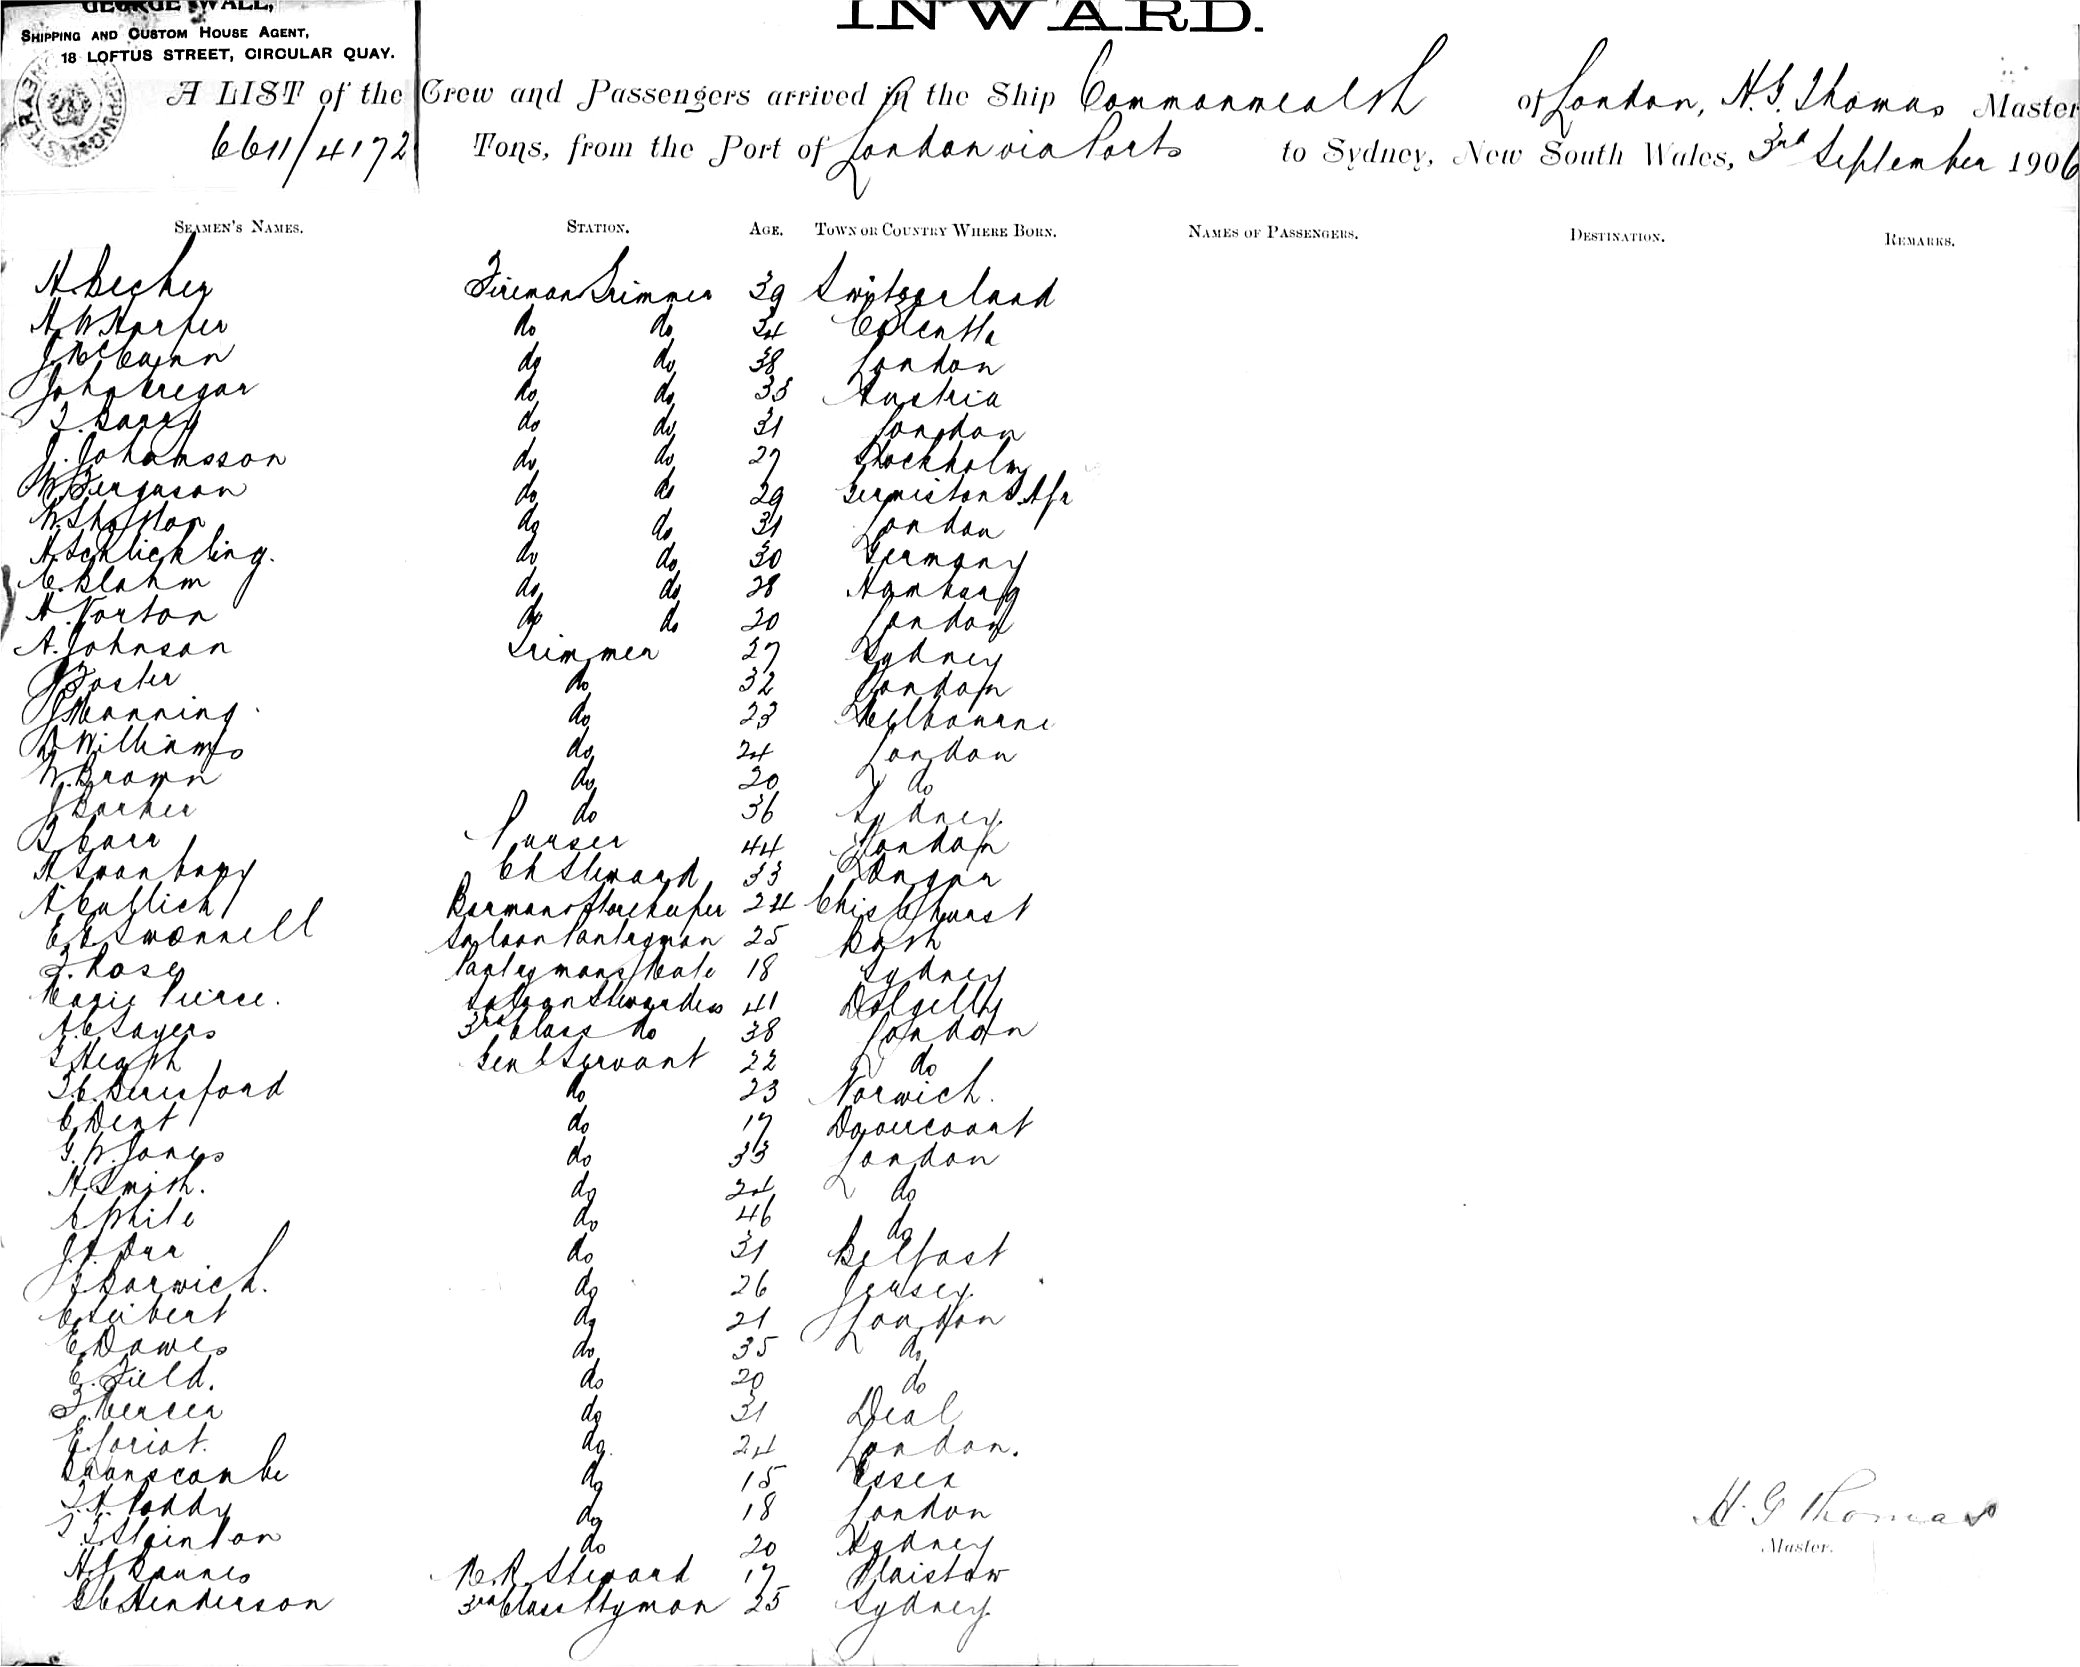 GEORGE WALL,
SHIPPING AND CUSTOM HOUSE AGENT,
18 LOFTUS STREET, CIRCULAR QUAY.
INWARD.
A LIST of the Crew and Passengers arrived in the Ship Commonwealth of London, H. G. Thomas Master
6611/4172 Tons, from the Port of London via Ports to Sydney, New South Wales, 3rd September 1906
SEAMEN'S NAMES. STATION. AGE. TOWN OR COUNTRY WHERE BORN. NAMES OF PASSENGERS. DESTINATION. REMARKS.
H. Becher Fireman Trimmer 39 Switzerland
A. W. Harper do do 34 Calcutta
J. McCann do do 38 London
John Gregar do do 33 Austria
T. Barry do do 31 London
J. Johansson do do 27 Stockholm
W. Ferguson do do 29 Germiston S. Afr
W. do do 31 London
H. Schlichting. do do 30 Germany
C. Blahm do do 28 Hamburg
H. Norton do do 20 London
A. Johnson Trimmer 27 Sydney
Foster do 32 London
J. Manning do 23 Melbourne
Williams do 24 London
W. Brown do 20 do
J. Barker do 36 Sydney.
Carr Purser 44 London
H. Swanbery Ch Steward 33 Ongar
A. Cullich Barman & Storekeeper 24 Chislehurst
E. E. Swannell Saloon Pantryman 25 Bath
F. Rose Pantrymans Mate 18 Sydney
Pierce. Saloon Stewardess 41 Dolgelly
A. E. Sayers 3rd Class do 38 London
Heath Genl Servant 22 do
Beresford do 23 Norwich.
C. Dent do 17 Dovercourt
G. W. Jones do 33 London
H. Smith. do 24 do
C. White do 46 do
J. Orr do 31 Belfast
Barwich. do 26 Jersey.
C. Seibert do 21 London
E. Dawes do 35 do
E. Field. do 20 do
F. Mercer do 31 Deal
E. Loriot. do. 24 London.
Branscombe do 15 Essex
Poddy do 18 London
Stainton do 20 Sydney
H. J. Barnes M. R. Steward 17 Plaistow
Henderson 3rd Class Ptyman 25 Sydney.
H. G Thomas
Master.